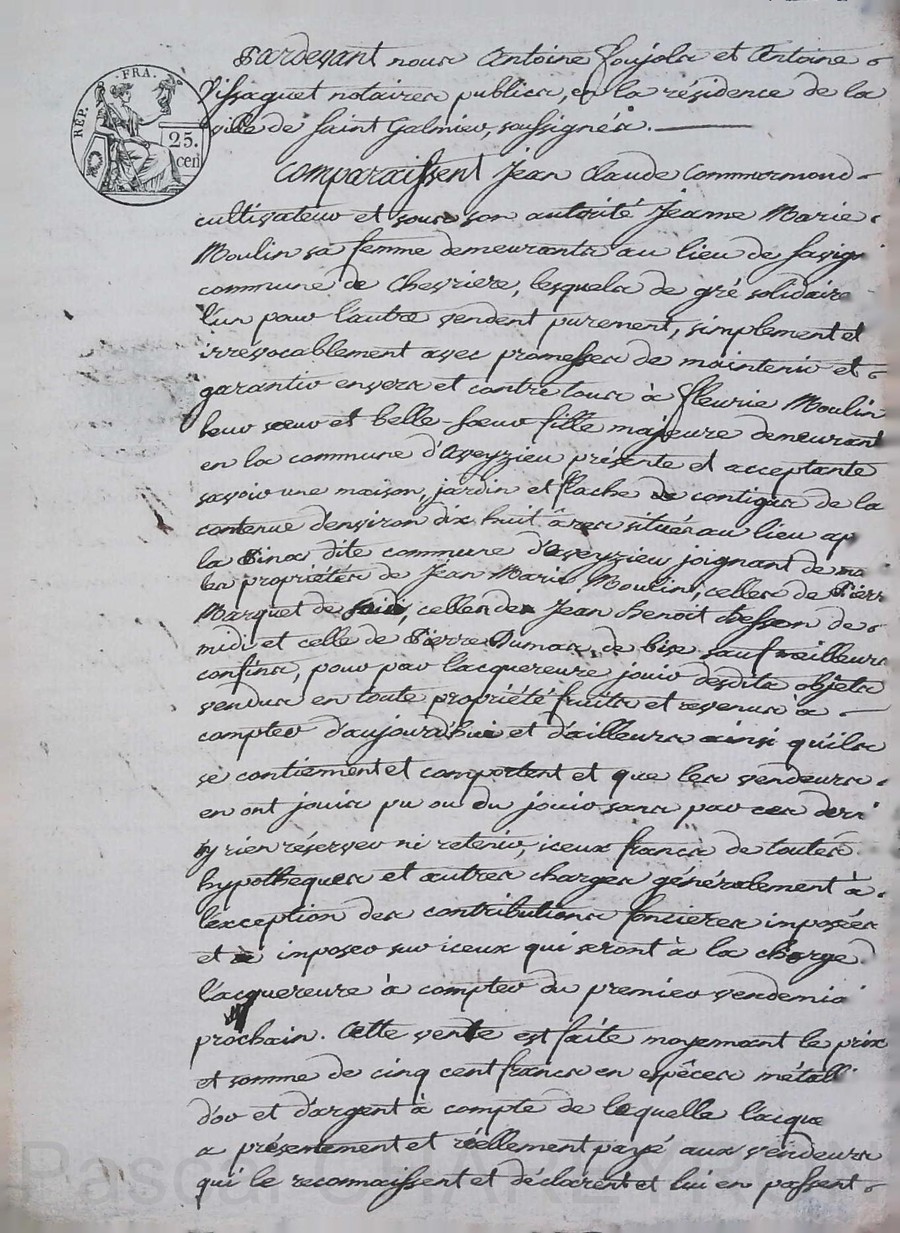 RÉP. FRA.
25.
cen
Pardevant nous Antoine Foujols et Antoine
Vissaguet notaires publics, en la résidence de la
ville de Saint Galmier, soussignés.
Comparaissent Jean Claude Commarmond
cultivateur et sous son autorité Jeanne Marie
Moulin sa femme demeurants au lieu de
commune de Chevriere, lesquels de gré solidaire
l'un pour l'autre vendent purement, simplement et
irrévocablement avec promesses de maintenir et
garantir envers et contre tous à Fleurie Moulin
leur sœur et belle-sœur fille majeure demeurant
en la commune d'Aveyzieu présente et acceptante
savoir une maison, jardin et flache de contigus de la
contenue d'environ dix huit âres situés au lieu ap
la dite commune d'Aveyzieu joignant de
les propriétés de Jean Marie Moulin, celles de Pierr
Marquet de soir, celles de Jean Benoit Besson de
midi et celle de Pierre Dumas, de bise sauf meilleurs
confins, pour par lacquereure jouir desdits objets
vendus en toute propriété fruits et revenus à
compter d'aujourd'hui et d'ailleurs ainsi qu'ils
se contiennent et comportent et que les vendeurs
en ont jouis pu ou du jouir sans par ces derni
y rien réserver ni retenir, iceux francs de toutes
hypotheques et autres charges généralement à
l'exception des contributions foncieres imposées
et à imposer sur iceux qui seront à la charge d
l'acquereure à compter du premier vendemia
prochain. Cette vente est faite moyennant le prix
et somme de cinq cent francs en espêces métall
d'or et d'argent à compte de laquelle l'acque
a présentement et réellement payé aux vendeurs
qui le reconnaissent et déclarent et lui en passent
Pascal CHAREYRON